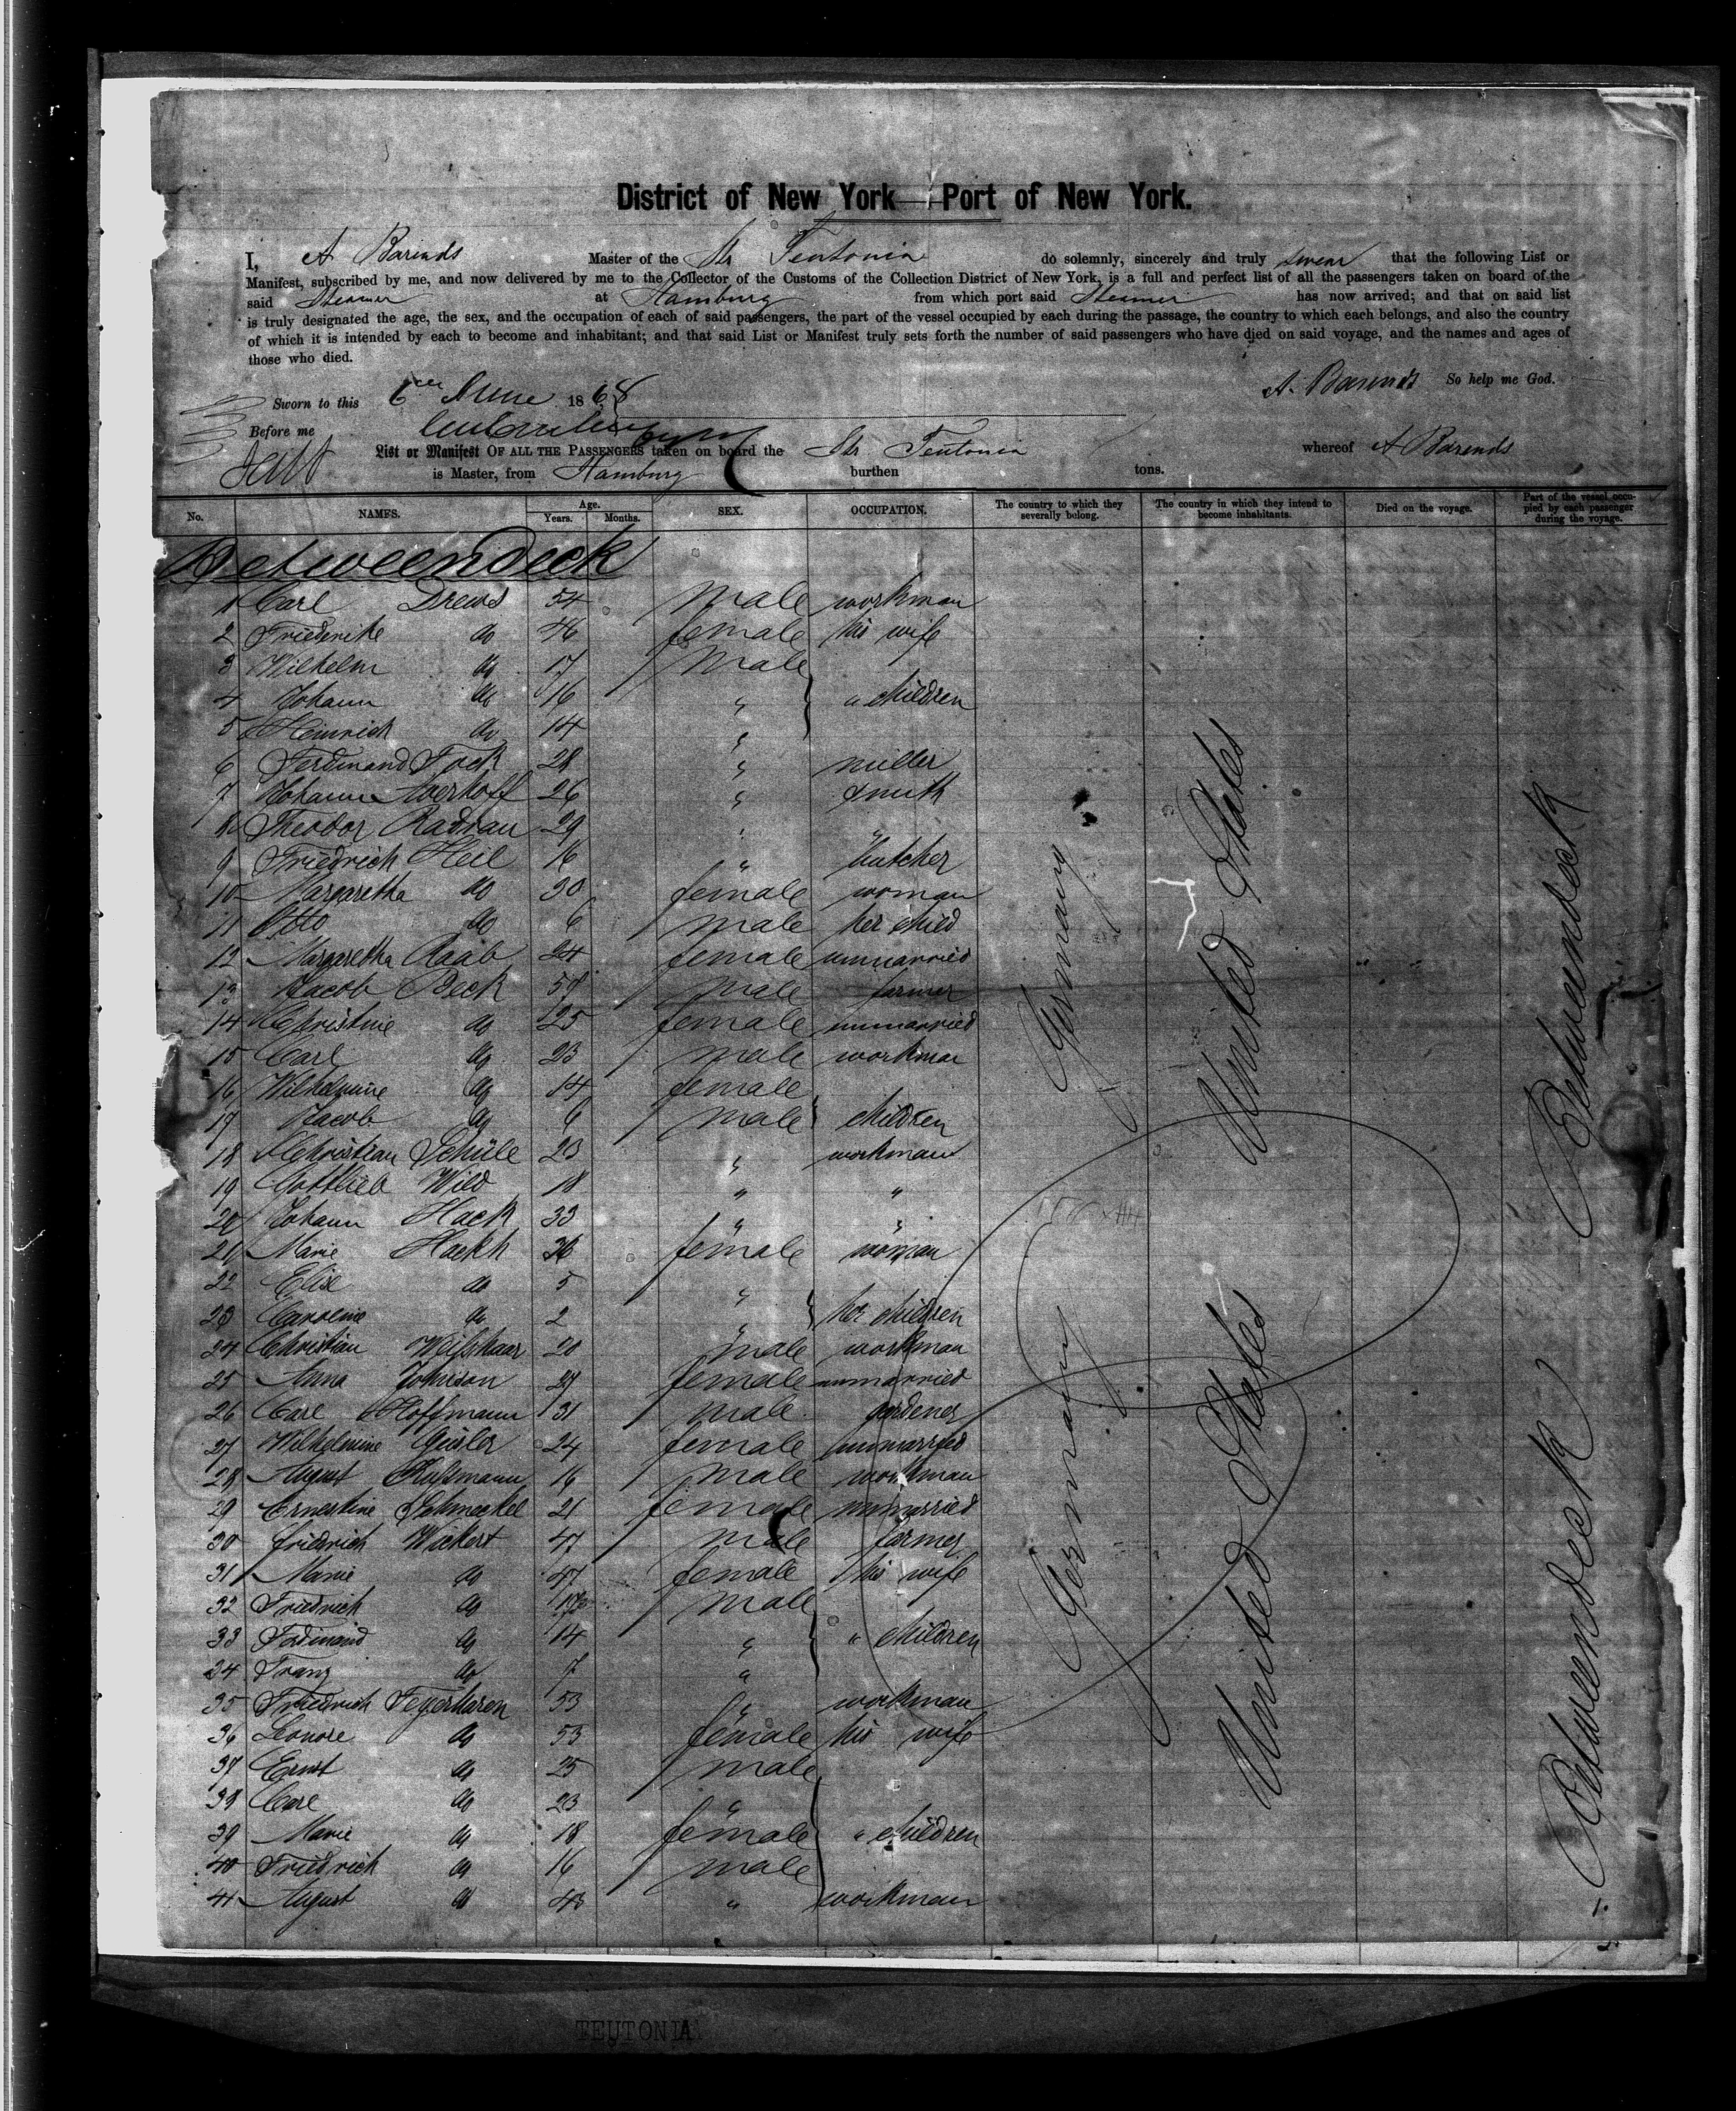 District of New York—Port of New York.
I, A Barends Master of the Str Teutonia do solemnly, sincerely and truly swear that the following List or
Manifest, subscribed by me, and now delivered by me to the Collector of the Customs of the Collection District of New York, is a full and perfect list of all the passengers taken on board of the
said Steamer at Hamburg from which port said Steamer has now arrived; and that on said list
is truly designated the age, the sex, and the occupation of each of said passengers, the part of the vessel occupied by each during the passage, the country to which each belongs, and also the country
of which it is intended by each to become and inhabitant; and that said List or Manifest truly sets forth the number of said passengers who have died on said voyage, and the names and ages of
those who died.
A. Barends So help me God.
Sworn to this 6 June 1868
Before me
List or Manifest OF ALL THE PASSENGERS taken on board the Str Teutonia whereof A Barends
is Master, from Hamburg burthen tons.
No. NAMES. Age. Years. Months. SEX. OCCUPATION. The country to which they severally belong. The country in which they intend to become inhabitants. Died on the voyage. Part of the vessel occupied by each passenger during the voyage.
Betweendeck
1 Carl Drews 54 male workman
2 Friederike do 46 female his wife
3 Wilhelm do 17 male
4 Johann do 16 " " children
5 Heinrich do 14 "
6 Ferdinand Fock 28 " miller
7 Johann Averhoff 26 " smith
8 Theodor Radvau 29 " "
9 Friedrich Heil 16 " butcher
10 Margaretha do 30 female woman
11 Otto do 6 male her child
12 Margaretha Raab 24 female unmarried
13 Jacob Beck 57 male farmer
14 Christine do 25 female unmarried
15 Carl do 23 male workman
16 Wilhelmine do 14 female
17 Jacob do 6 male children
18 Christian Schüle 23 " workman
19 Gottlieb Wild 18 " "
20 Johann Hack 33 " "
21 Marie Hackh 36 female woman
22 Elise do 5 "
23 Caroline do 2 " her children
24 Christian Weifshaar 20 male workman
25 Anna Johnson 27 female unmarried
26 Carl Hoffmann 31 male gardener
27 Wilhelmine Geisler 24 female unmarried
28 August Hofsmann 16 male workman
29 Ernestine Schmeckel 21 female unmarried
30 Friedrich Wickert 47 male farmer
31 Marie do 47 female his wife
32 Friedrich do 17 male
33 Ferdinand do 14 " " children
34 Franz do 7 "
35 Friedrich Feyerharen 53 " workman
36 Leonore do 53 female his wife
37 Ernst do 25 male
38 Carl do 23 "
39 Marie do 18 female " children
40 Friedrich do 16 male
41 August do 43 " workman
Germany
United States
Betweendeck
Germany
United States
Betweendeck
TEUTONIA